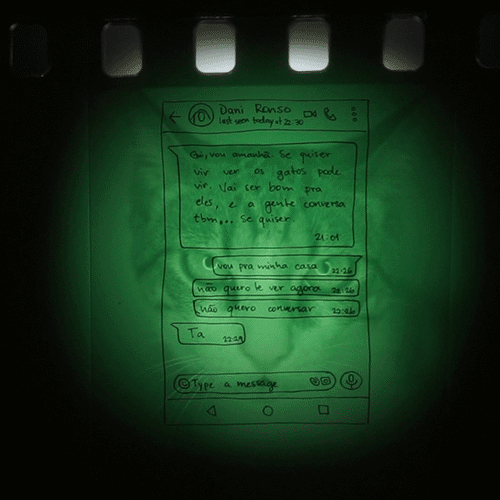 Dani Renso
last seen today at 22:30
Gi, vou amanhã. Se quiser
vir ver os gatos pode
vir. Vai ser bom pra
eles, e a gente conversa
tbm... Se quiser.
21:01
vou pra minha casa 22:26
não quero te ver agora 22:26
não quero conversar 22:26
Ta 22:29
Type a message